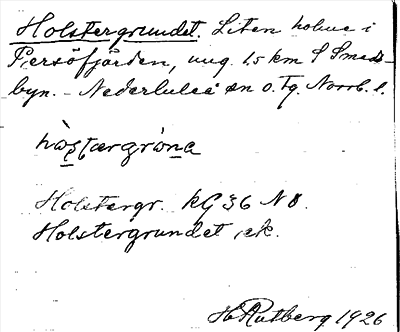 Holstergrundet. Liten holme i
Persöfjärden, ung. 1.5 km S Smeds-
byn. - Nederluleå sn o. Tg. Norrb. l.
hòstərgròna
Holstergr. KG 36 NO.
Holstergrundet, ek.
H Rutberg 1926